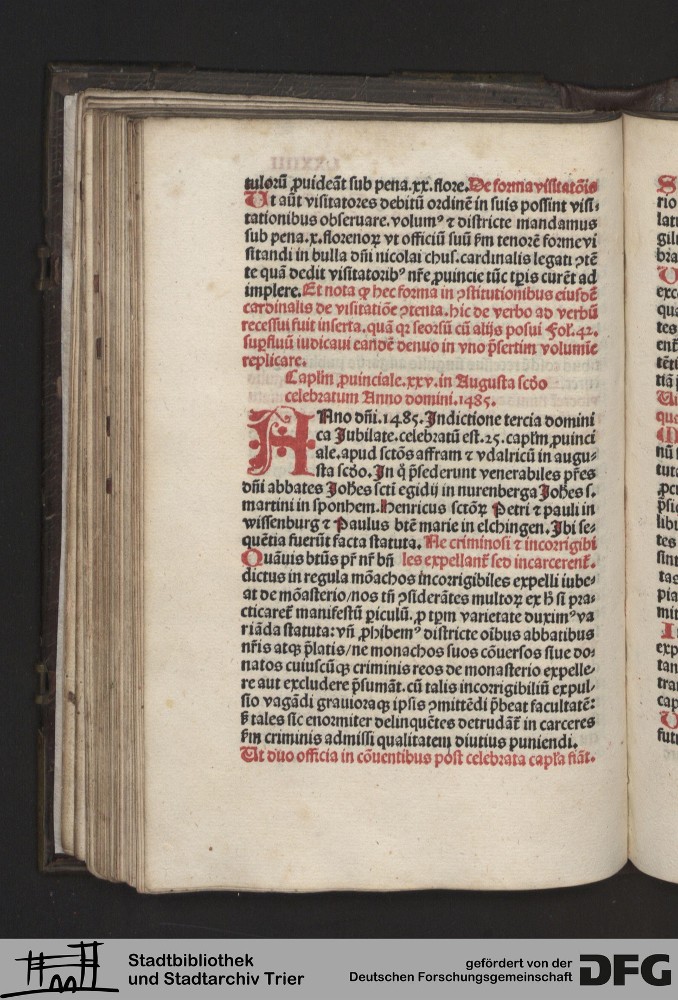 tulorū ꝓuideāt sub pena.xx.flore.De forma visitatōis
Ut aūt visitatores debitū ordinē in suis possint visi-
tationibus obseruare.volumꝰ ⁊ districte mandamus
sub pena.x.florenoꝝ vt officiū suū ẜm tenorē forme vi
sitandi in bulla dn̄i nicolai chus.cardinalis legati ꝯtē
te quā dedit visitatoribꝰ nr̄e ꝓuincie tūc tp̄is curēt ad
implere.Et nota ꝙ hec forma in ꝯstitutionibus eiusdē
cardinalis de visitatiōe ꝯtenta.hic de verbo ad verbū
recessui fuit inserta.quā qꝛ seorsū cū alijs posui Fol.42.
suꝑfluū iudicaui eandē denuo in vno p̄sertim volumīe
replicare.
Capl̄m ꝓuinciale.xxv.in Augusta scd̄o
celebratum Anno domini.1485.
ANno dn̄i.1485.Indictione tercia domini
ca Jubilate.celebratū est.25.capl̄m ꝓuinci
ale.apud sctōs affram ⁊ vdalricū in augu-
sta scd̄o.In q̊ p̄sederunt venerabiles pr̄es
dn̄i abbates Joh̄es scti egidij in nurenberga Joh̄es s.
martini in sponhem.Henricus sctōꝝ Petri ⁊ pauli in
wissenburg ⁊ Paulus btē marie in elchingen.Ibi se-
quētia fuerūt facta statuta. Ne criminosi ⁊ incorrigibi
Quāuis btūs pr̄ nr̄ bn̄ les expellant̄ sed incarcerent̄.
dictus in regula mōachos incorrigibiles expelli iube-
at de mōasterio/nos tn̄ ꝯsiderātes multoꝝ ex h̄ si pra-
cticaret̄ manifestū ꝑiculū.ꝓ tp̄m varietate duximꝰ va
riāda statuta: vn̄ ꝓhibemꝰ districte oībus abbatibus
nr̄is atqꝫ p̄latis/ne monachos suos cōuersos siue do-
natos cuiuscūqꝫ criminis reos de monasterio expelle-
re aut excludere p̄sumāt.cū talis incorrigibiliū expul-
sio vagādi grauioraqꝫ ipsis ꝯmittēdi p̄beat facultatē:
ꝸ tales sic enormiter delinquētes detrudāt̄ in carceres
ẜm criminis admissi qualitatem diutius puniendi.
Ut duo officia in cōuentibus post celebrata capl̄a fiāt.
Stadtbibliothek
und Stadtarchiv Trier
gefördert von der
Deutschen Forschungsgemeinschaft
DFG